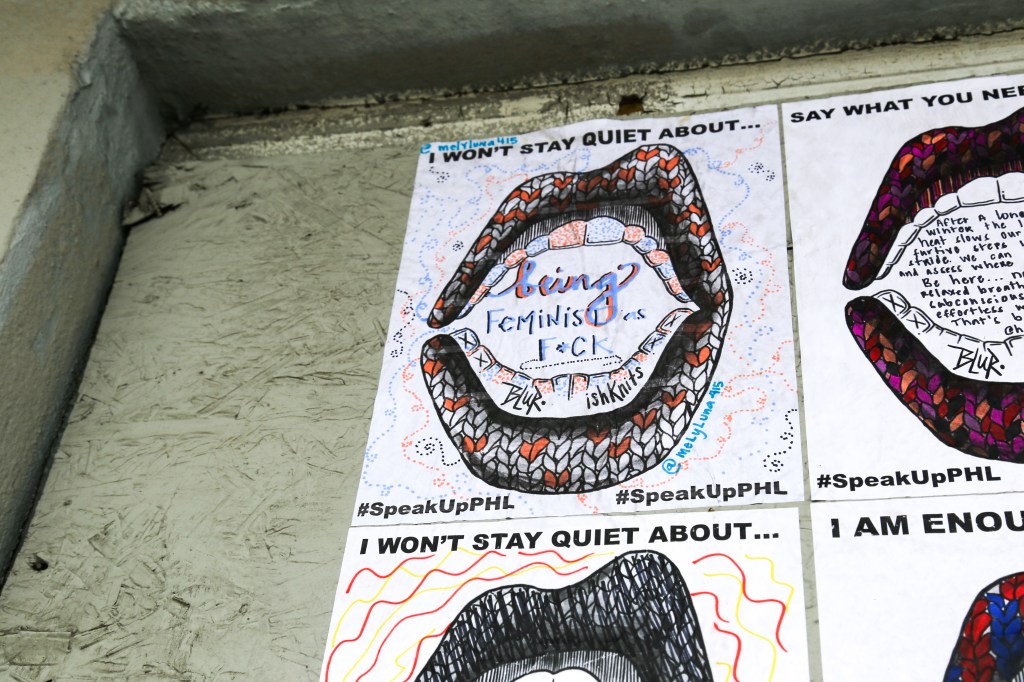 @melyluna415
I WON'T STAY QUIET ABOUT...
being
FEMINIST as
F*CK
BLUR.
ishKnits
@melyluna415
#SpeakUpPHL
#SpeakUpPHL
SAY WHAT YOU NEE
After a long
winter the
heat slows our
furtive steps
stride. We can
and assess where
Be here...
relaxed breath
subconscious
effortless
That's
@h
BLUR.
#SpeakUpPHL
I WON'T STAY QUIET ABOUT...
I AM ENOU